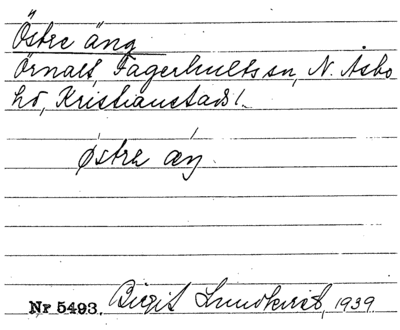 Östre äng
Örnalt, Fagerhults sn, N. Åsbo
hd, Kristianstads l.
østrə æŋ.
Nr 5493. Birgit Lundkvist, 1939.